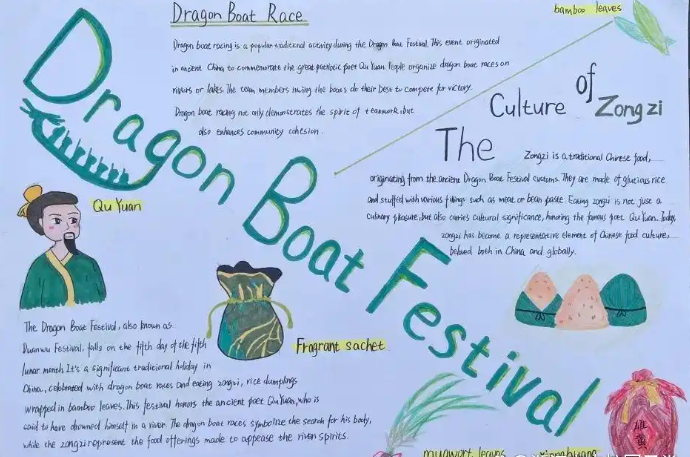 Dragon Boat Race
Dragon boat racing is a popular traditional activity during the Dragon Boat Festival. This event originated
in ancient China to commemorate the great patriotic poet Qu Yuan. People organize dragon boat races on
rivers or lakes. The team members rowing the boats do their best to compete for victory.
Dragon boat racing not only demonstrates the spirit of teamwork, but
also enhances community cohesion.
bamboo leaves
The Culture of Zongzi
Zongzi is a traditional Chinese food,
originating from the ancient Dragon Boat Festival customs. They are made of glutinous rice
and stuffed with various fillings such as meat or bean paste. Eating zongzi is not just a
culinary pleasure but also carries cultural significance, honoring the famous poet Qu Yuan. Today,
zongzi has become a representative element of Chinese food culture,
beloved both in China and globally.
Dragon Boat Festival
Qu Yuan
Fragrant sachet
The Dragon Boat Festival, also known as
Duanwu Festival, falls on the fifth day of the fifth
lunar month. It's a significant traditional holiday in
China, celebrated with dragon boat races and eating zongzi, rice dumplings
wrapped in bamboo leaves. This festival honors the ancient poet Qu Yuan, who is
said to have drowned himself in a river. The dragon boat races symbolize the search for his body,
while the zongzi represent the food offerings made to appease the river spirits.
mugwort leaves
雄黄